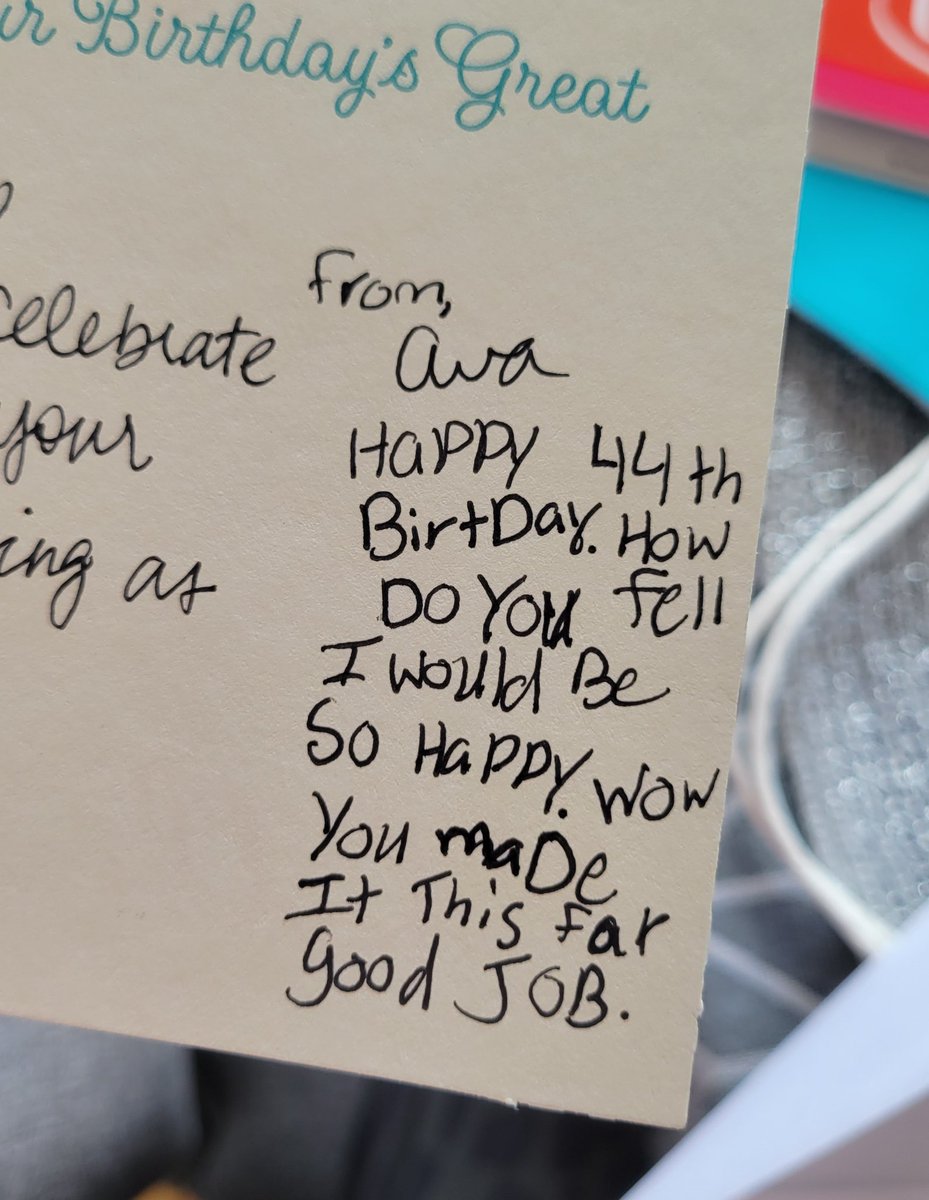 Birthday's Great
celebrate
your
as
from,
Ava
Happy 44th
BirtDay. How
Do You fell
I would Be
So Happy. Wow
You maDe
It This far
good JOB.